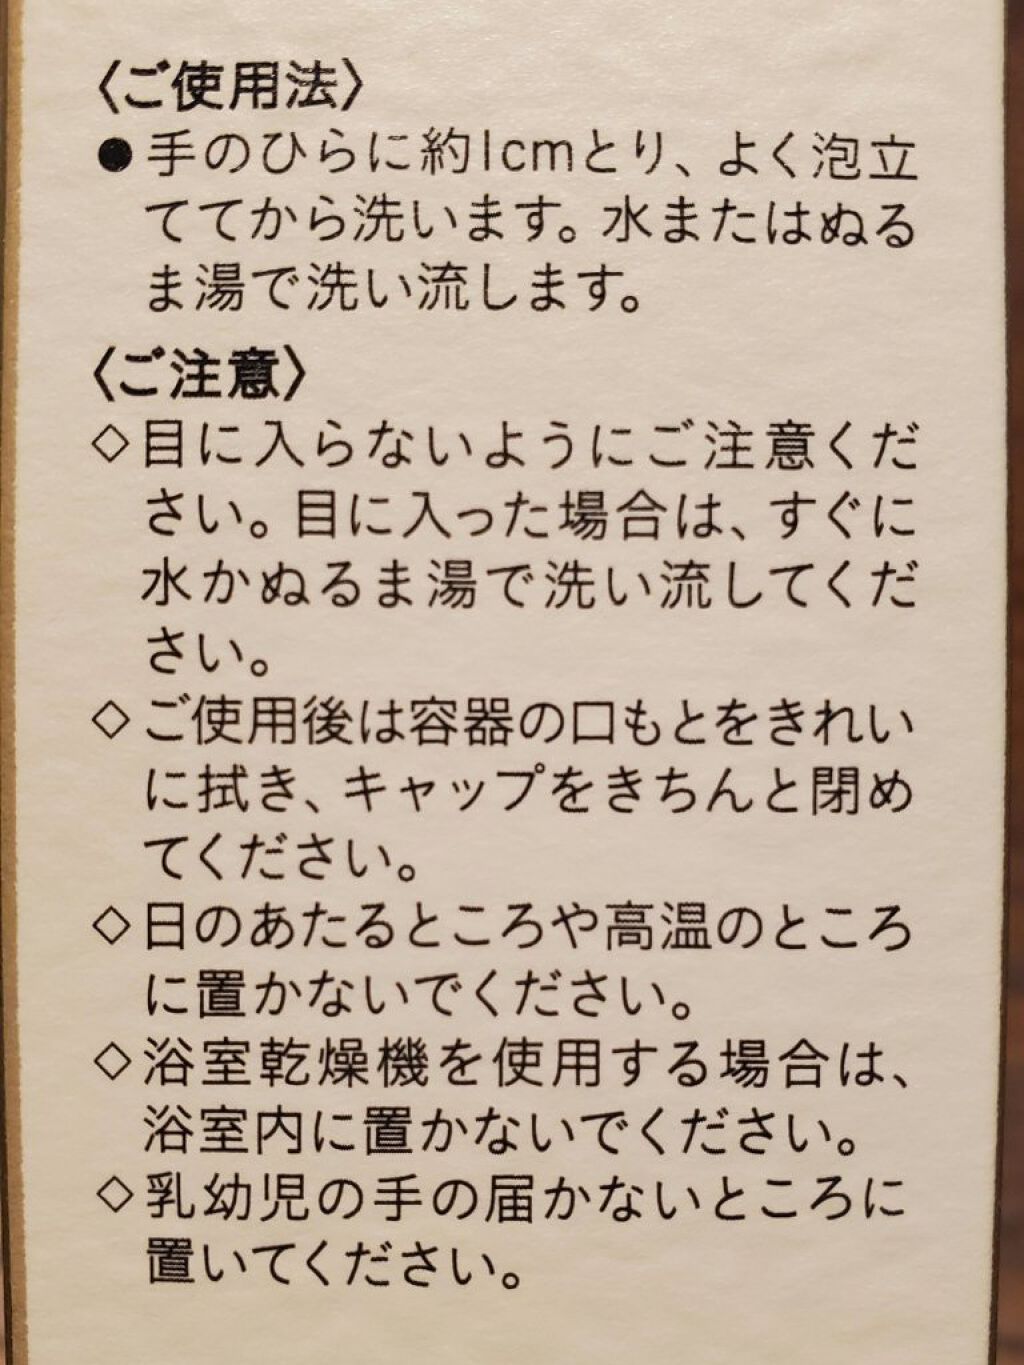 〈ご使用法〉
●手のひらに約1cmとり、よく泡立
ててから洗います。水またはぬる
ま湯で洗い流します。
〈ご注意〉
◇目に入らないようにご注意くだ
さい。目に入った場合は、すぐに
水かぬるま湯で洗い流してくだ
さい。
◇ご使用後は容器の口もとをきれい
に拭き、キャップをきちんと閉め
てください。
◇日のあたるところや高温のところ
に置かないでください。
◇浴室乾燥機を使用する場合は、
浴室内に置かないでください。
◇乳幼児の手の届かないところに
置いてください。